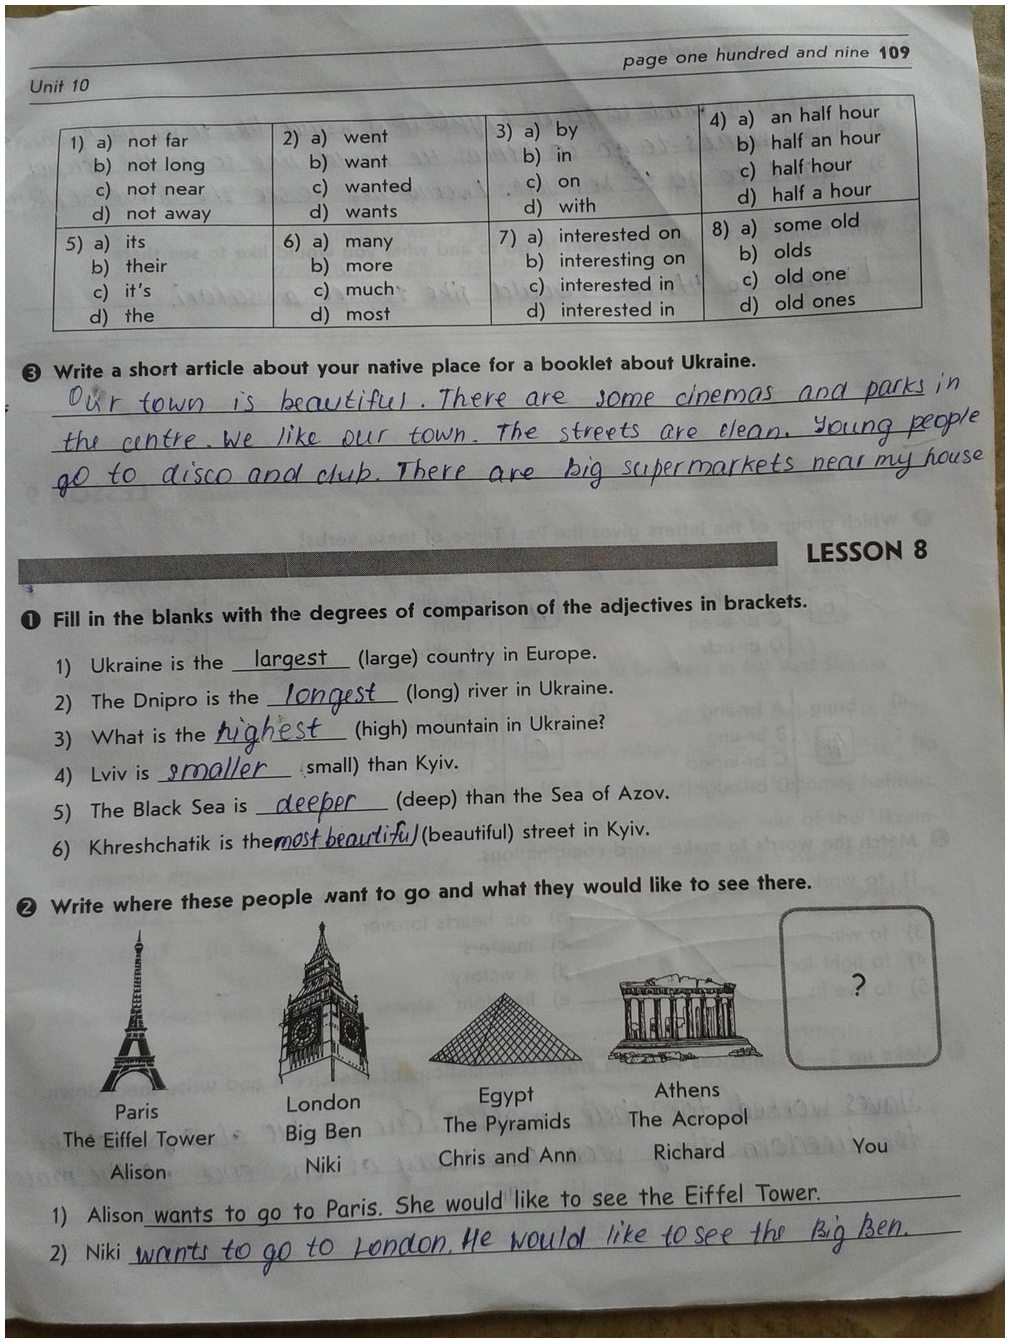 page one hundred and nine 109
Unit 10
1) a) not far
b) not long
c) not near
d) not away
2) a) went
b) want
c) wanted
d) wants
3) a) by
b) in
c) on
d) with
4) a) an half hour
b) half an hour
c) half hour
d) half a hour
5) a) its
b) their
c) it's
d) the
6) a) many
b) more
c) much
d) most
7) a) interested on
b) interesting on
c) interested in
d) interested in
8) a) some old
b) olds
c) old one
d) old ones
3 Write a short article about your native place for a booklet about Ukraine.
Our town is beautiful. There are some cinemas and parks in
the centre. We like our town. The streets are clean. Young people
go to disco and club. There are big supermarkets near my house
LESSON 8
1 Fill in the blanks with the degrees of comparison of the adjectives in brackets.
1) Ukraine is the largest (large) country in Europe.
2) The Dnipro is the longest (long) river in Ukraine.
3) What is the highest (high) mountain in Ukraine?
4) Lviv is smaller (small) than Kyiv.
5) The Black Sea is deeper (deep) than the Sea of Azov.
6) Khreshchatik is the most beautiful (beautiful) street in Kyiv.
2 Write where these people want to go and what they would like to see there.
?
Paris
The Eiffel Tower
Alison
London
Big Ben
Niki
Egypt
The Pyramids
Chris and Ann
Athens
The Acropol
Richard
You
1) Alison wants to go to Paris. She would like to see the Eiffel Tower.
2) Niki wants to go to London. He would like to see the Big Ben.